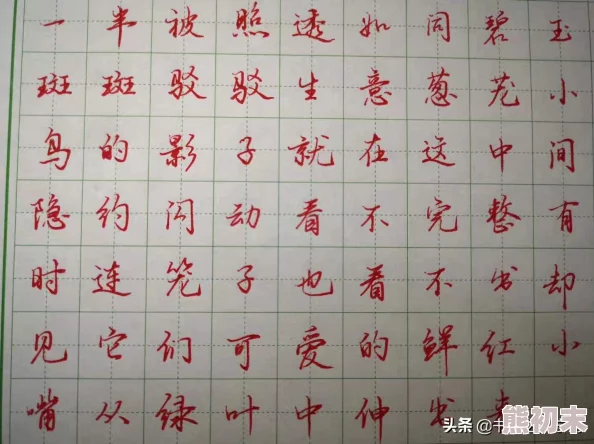 一半被照透如同碧玉
斑斑驳驳生意葱茏小
鸟的影子就在这中间
隐约闪动看不完整有
时连笼子也看不出却
见它们可爱的鲜红小
嘴从绿叶中伸出来
头条 @书
熊初末